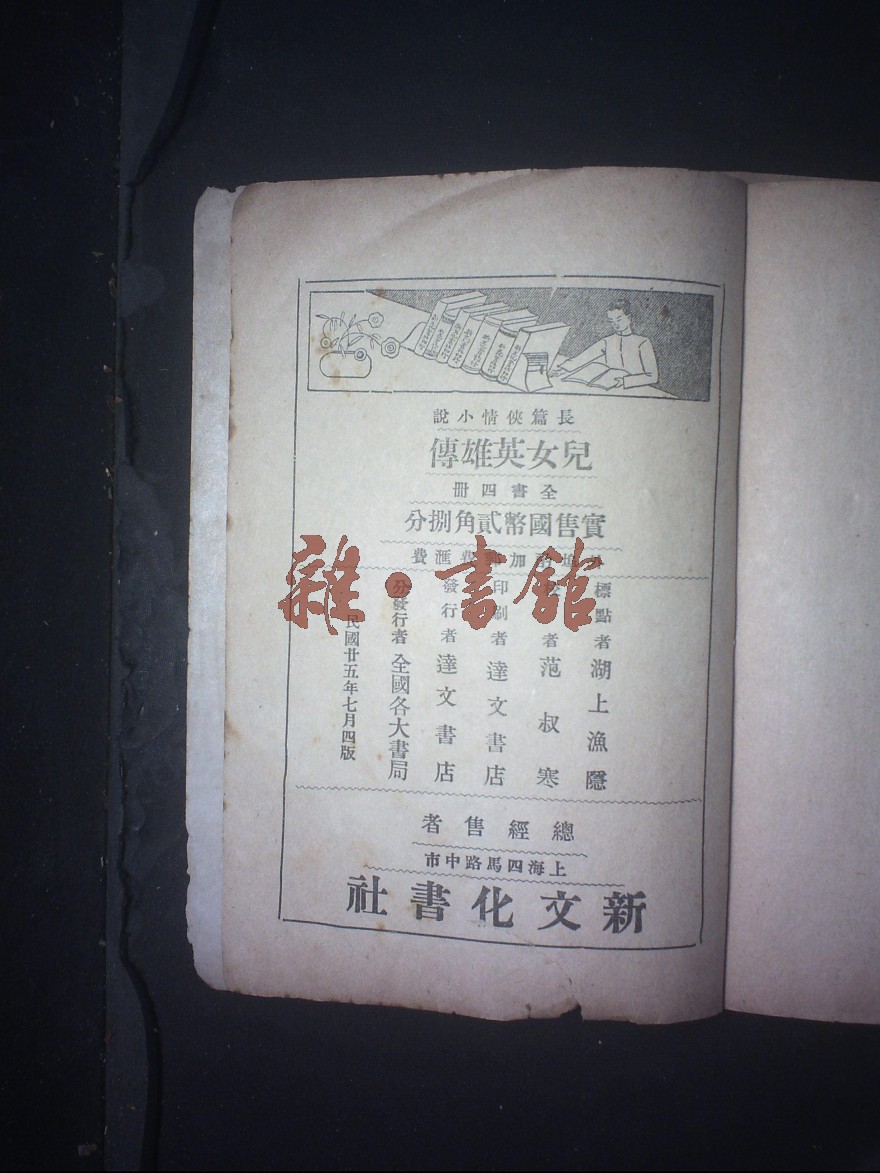 長篇俠情小說
兒女英雄傳
全書四冊
實售國幣貳角捌分
加費滙費
標點者 湖上漁隱
者 范叔寒
印刷者 達文書店
發行者 達文書店
分發行者 全國各大書局
民國廿五年七月四版
總經售者
上海四馬路中市
新文化書社
雜·書館